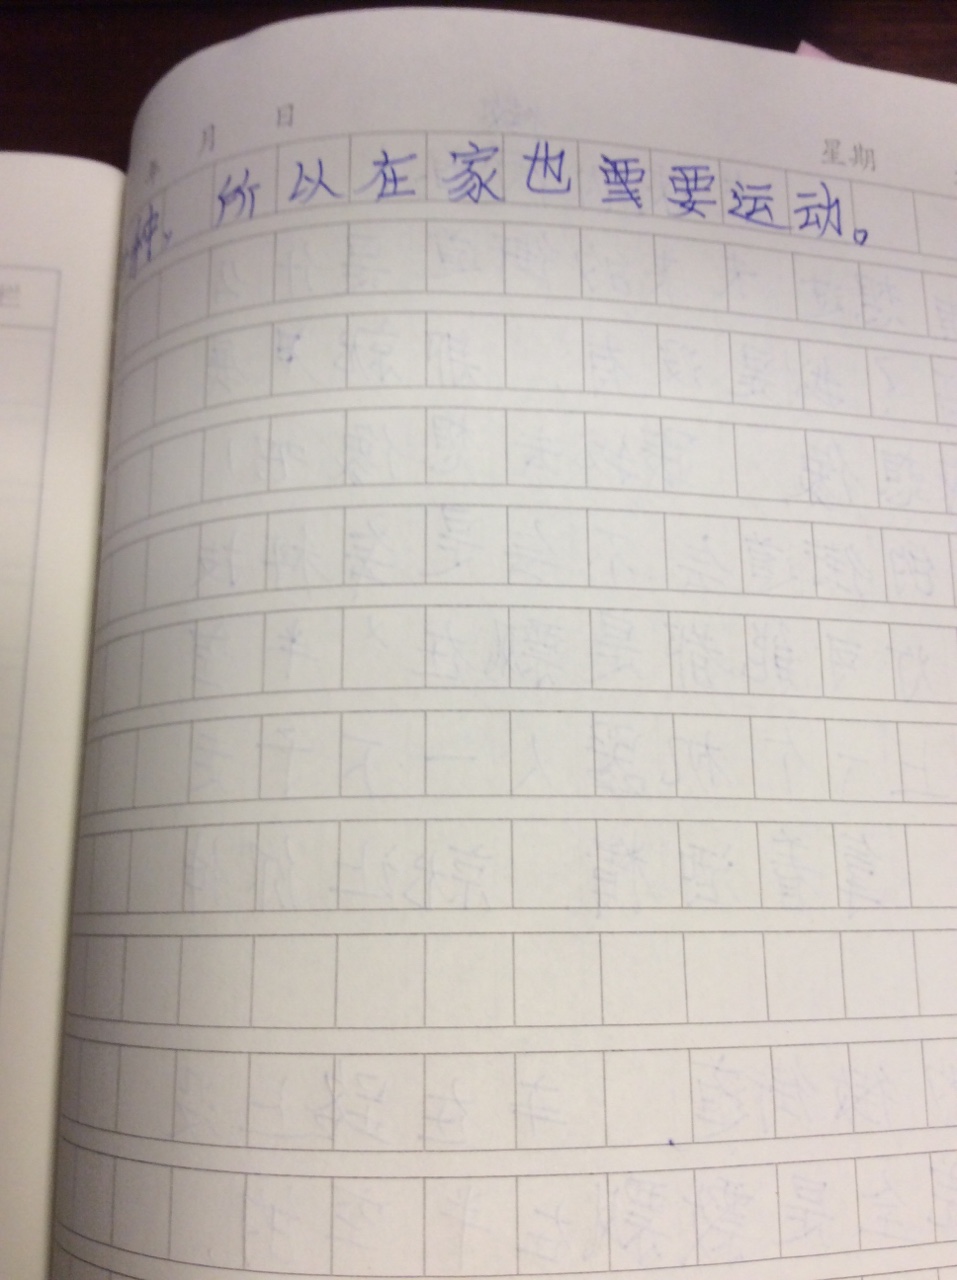 年 月 日 星期
钟、所以在家也要要运动。